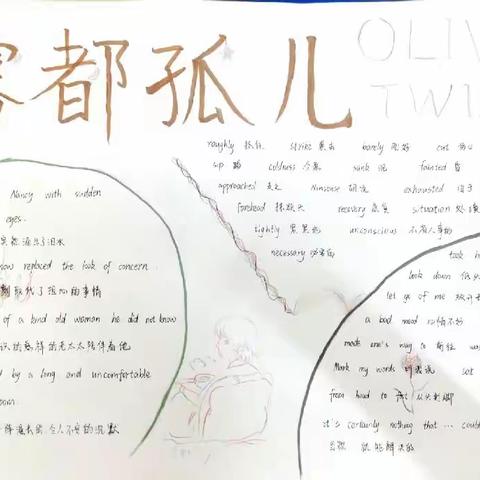 雾都孤儿
OLIV
TWI
roughly 粗糙 strike 袭击 barely 刚好 cut 伤口
sip 啜 coldness 冷漠 sank 沉 fainted 昏
approached 走近 Nonsense 胡说 exhausted
forehead 额头 recovery 恢复 situation 处境
tightly 紧紧地 unconscious 不省人事的
necessary 必要的
Nancy with sudden
eyes.
流出了泪水
now replaced the look of concern
取代了担心的事情
of a kind old woman he did not know
识的慈祥的老太太陪伴着他
d by a long and uncomfortable
oom.
令人不安的沉默
took h
look down
let go of me 放开
a bad mood 心情不好
made one's way to 前往
Mark my words 听我说 sat
from head to foot 从头到脚
it's certainly nothing that ... could
就能解决的